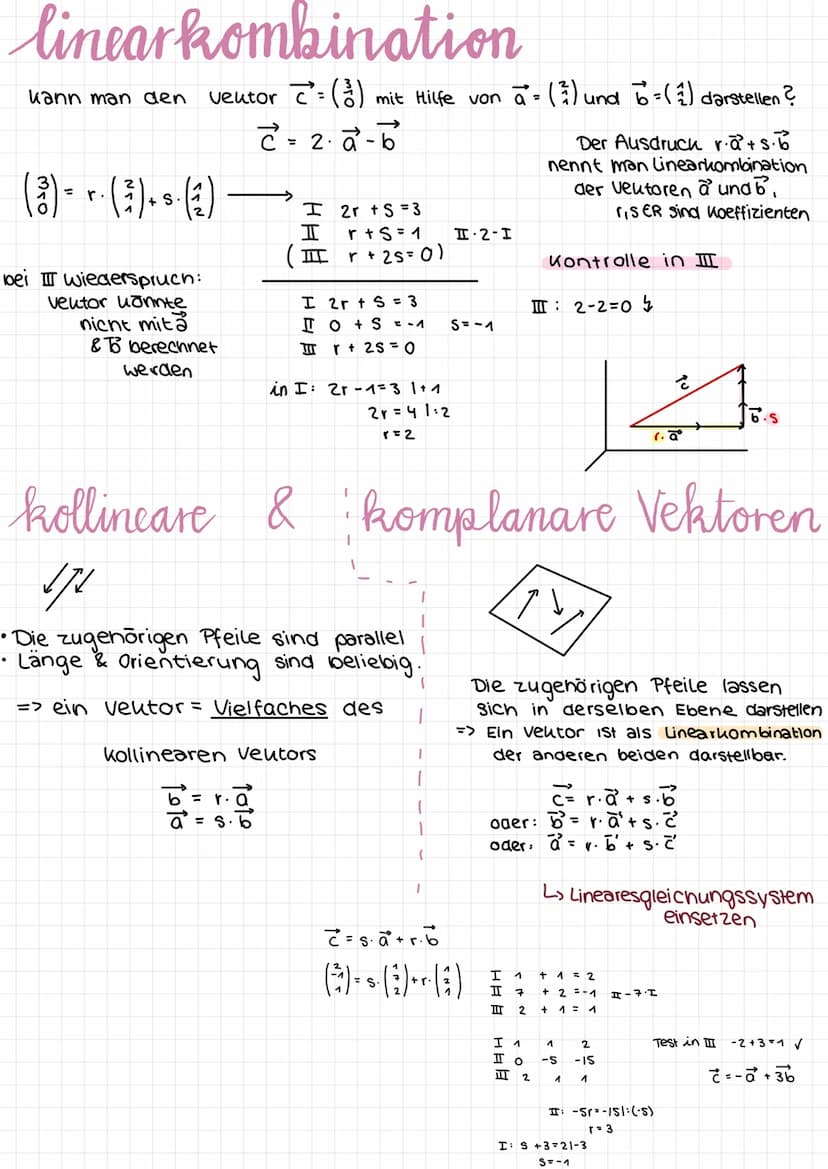 linearkombination
Kann man den Vektor c⃗ = (3 1 0) mit Hilfe von a⃗ = (2 1 1) und b⃗ = (1 1 2) darstellen?
c⃗ = 2 · a⃗ - b⃗
Der Ausdruck r·a⃗ + s·b⃗
nennt man Linearkombination
der Vektoren a⃗ und b⃗,
r,s ∈ R sind Koeffizienten
(3 1 0) = r · (2 1 1) + s · (1 1 2) →
I 2r + s = 3
II r + s = 1 II·2-I
(III r + 2s = 0)
bei III Wiederspruch:
Vektor könnte
nicht mit a⃗
& b⃗ berechnet
werden
I 2r + s = 3
II 0 + s = -1 s = -1
III r + 2s = 0
in I: 2r - 1 = 3 | +1
2r = 4 | :2
r = 2
Kontrolle in III
III: 2-2=0 ↯
c⃗
b⃗·s
r·a⃗
kollineare & komplanare Vektoren
• Die zugehörigen Pfeile sind parallel
• Länge & Orientierung sind beliebig.
=> ein Vektor = Vielfaches des
kollinearen Vektors
b⃗ = r·a⃗
a⃗ = s·b⃗
Die zugehörigen Pfeile lassen
sich in derselben Ebene darstellen
=> Ein Vektor ist als Linearkombination
der anderen beiden darstellbar.
c⃗ = r·a⃗ + s·b⃗
oder: b⃗ = r·a⃗ + s·c⃗
oder: a⃗ = r·b⃗ + s·c⃗
↳ Linearesgleichungssystem
einsetzen
c⃗ = s·a⃗ + r·b⃗
(2 -1 1) = s·(1 7 2) + r·(1 2 1)
I 1 + 1 = 2
II 7 + 2 = -1 II-7·I
III 2 + 1 = 1
I 1 1 2
II 0 -5 -15
III 2 1 1
Test in III -2+3=1 ✓
c⃗ = -a⃗ + 3b⃗
II: -5r = -15 | :(-5)
r = 3
I: s + 3 = 2 | -3
s = -1